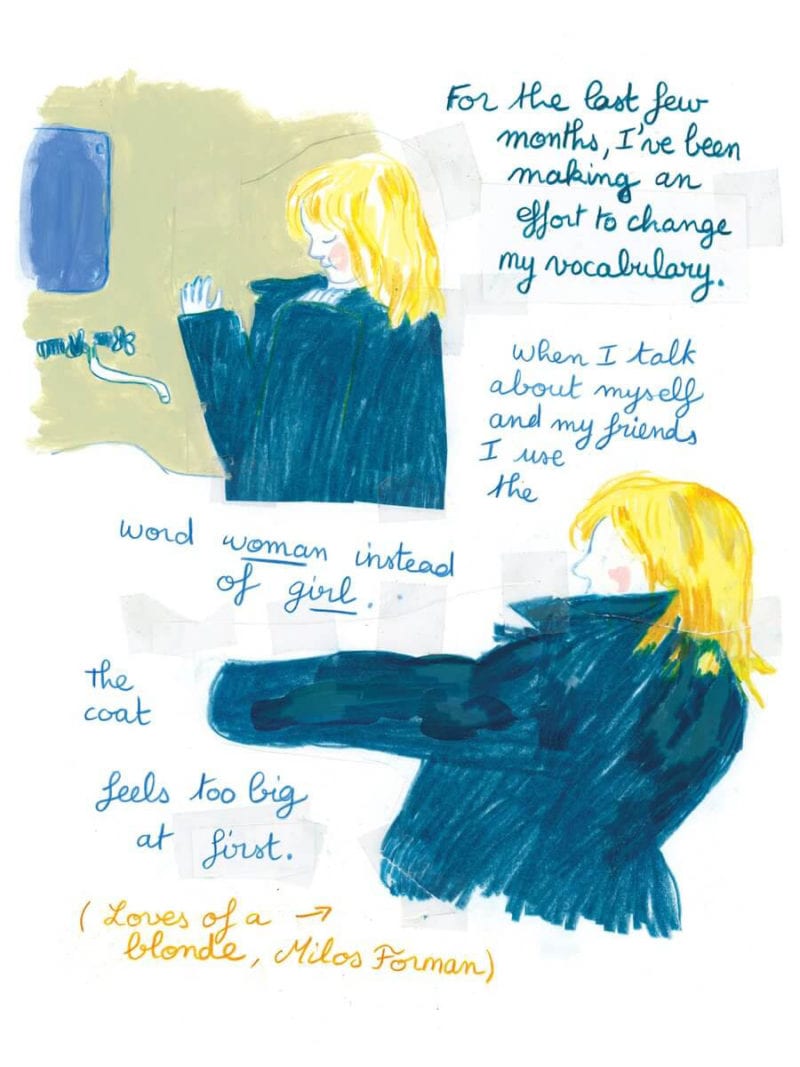 For the last few
months, I've been
making an
effort to change
my vocabulary.
When I talk
about myself
and my friends
I use
the
word woman instead
of girl.
the
coat
feels too big
at first.
(Loves of a →
blonde, Milos Forman)